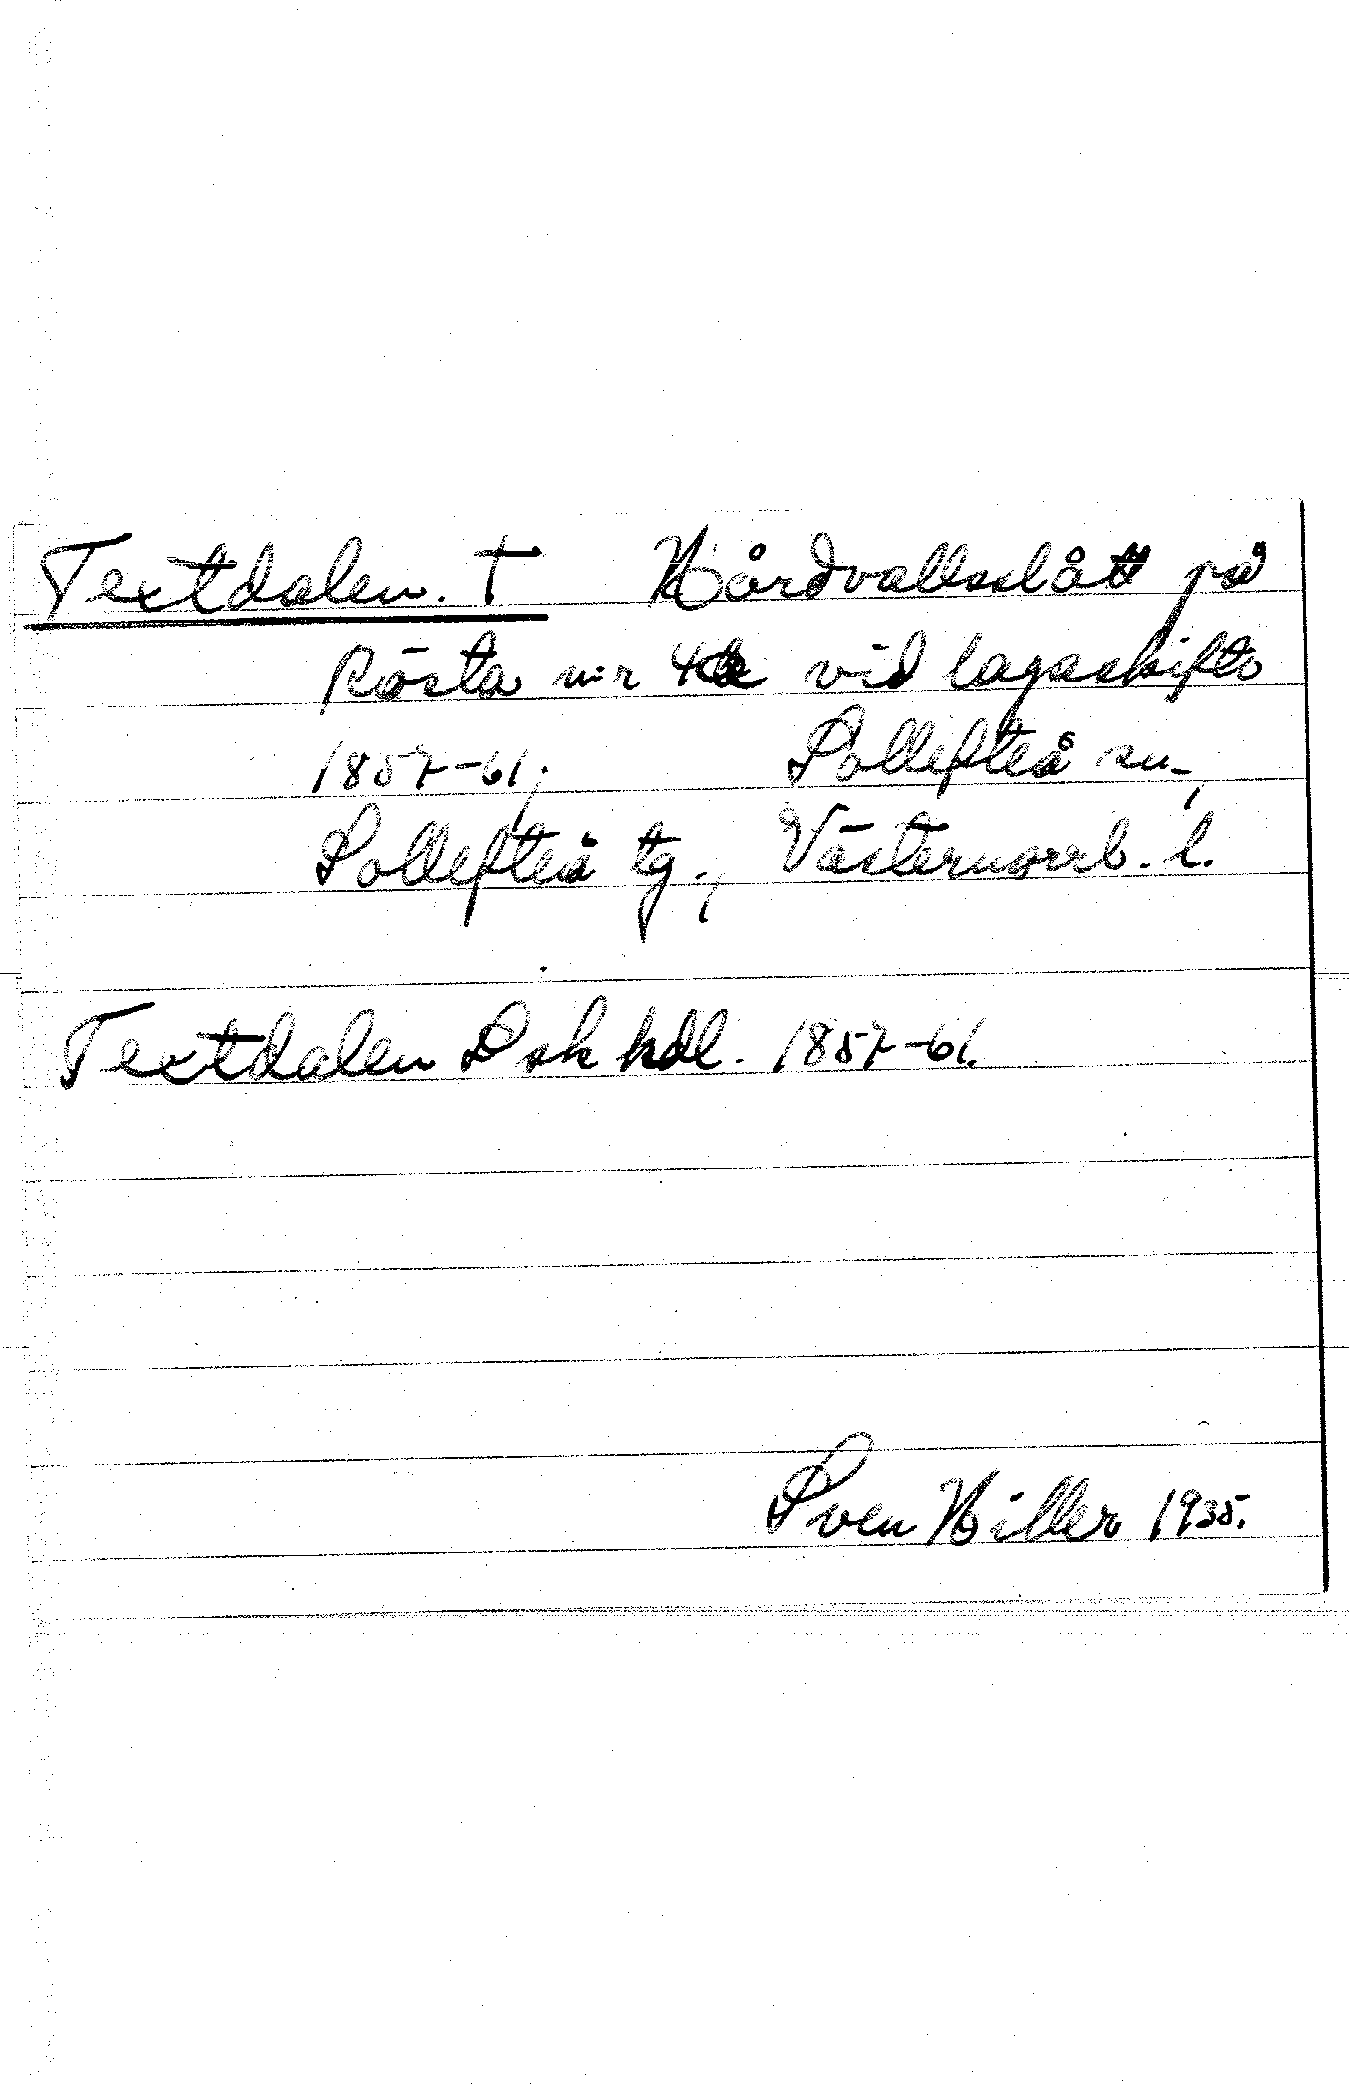 Textdalen. † Hårdvallsslått på
Rösta n:r 4 vid lagaskifte
1857-61; Sollefteå sn,
Sollefteå tg., Västernorrl. l.
Textdalen Lsk hdl. 1857-61.
Sven Hiller 1935.